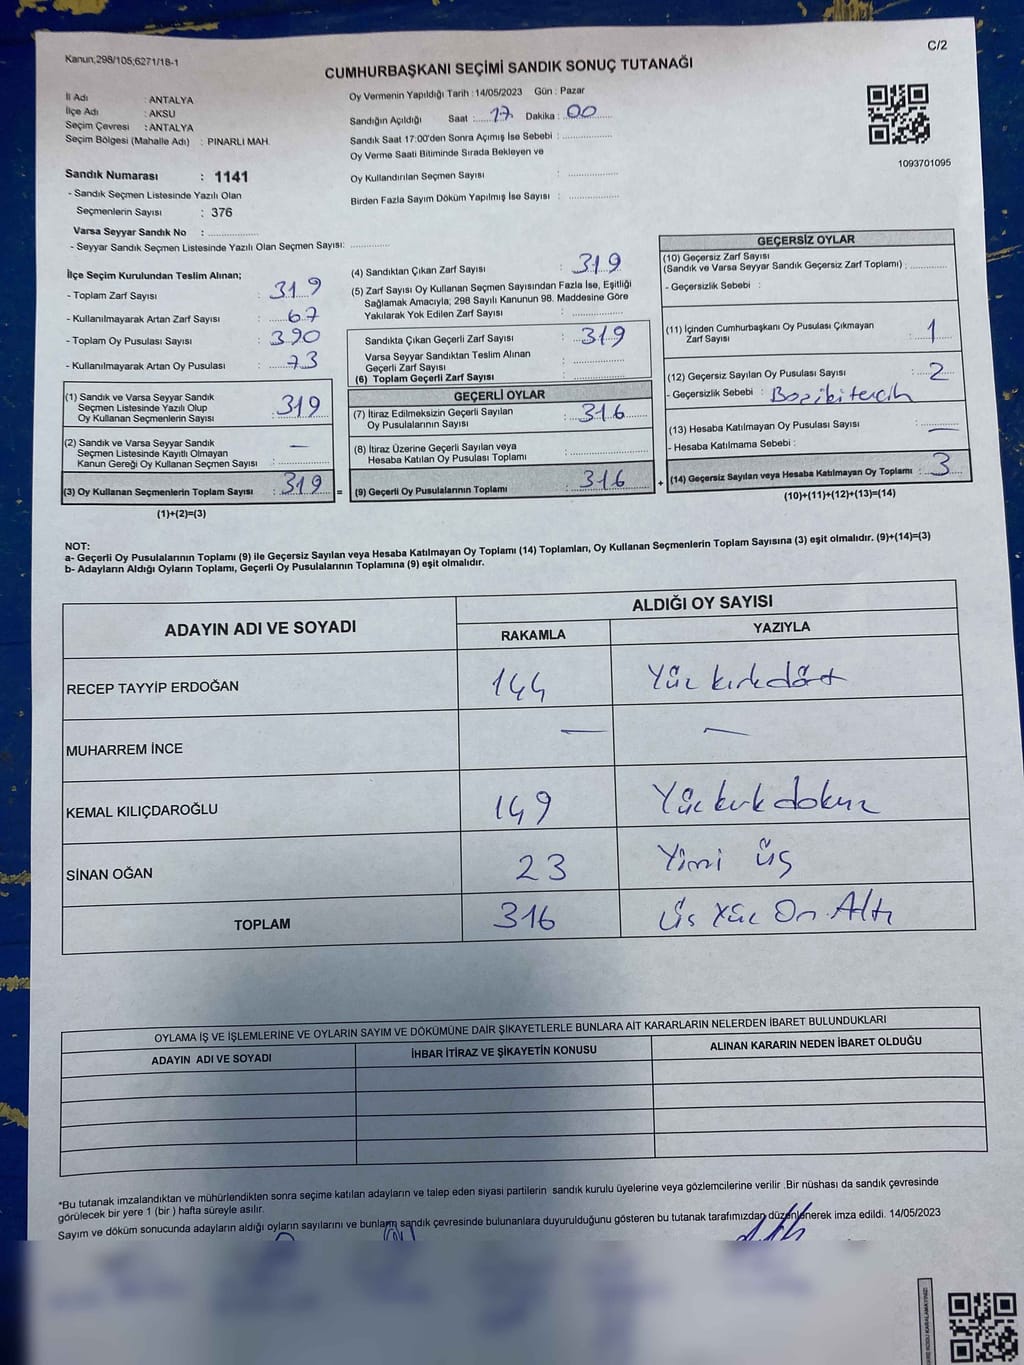 Kanun;298/105;6271/18-1
C/2
CUMHURBAŞKANI SEÇİMİ SANDIK SONUÇ TUTANAĞI
İl Adı : ANTALYA
İlçe Adı : AKSU
Seçim Çevresi : ANTALYA
Seçim Bölgesi (Mahalle Adı) : PINARLI MAH.
Sandık Numarası : 1141
- Sandık Seçmen Listesinde Yazılı Olan
Seçmenlerin Sayısı : 376
Varsa Seyyar Sandık No : ................
- Seyyar Sandık Seçmen Listesinde Yazılı Olan Seçmen Sayısı: ............
Oy Vermenin Yapıldığı Tarih : 14/05/2023 Gün : Pazar
Sandığın Açıldığı Saat : 17 Dakika : 00
Sandık Saat 17:00'den Sonra Açımış İse Sebebi : ...............
Oy Verme Saati Bitiminde Sırada Bekleyen ve
Oy Kullandırılan Seçmen Sayısı : ...............
Birden Fazla Sayım Döküm Yapılmış İse Sayısı : ...............
1093701095
İlçe Seçim Kurulundan Teslim Alınan;
- Toplam Zarf Sayısı : 319
- Kullanılmayarak Artan Zarf Sayısı : 67
- Toplam Oy Pusulası Sayısı : 390
- Kullanılmayarak Artan Oy Pusulası : 73
(1) Sandık ve Varsa Seyyar Sandık
Seçmen Listesinde Yazılı Olup
Oy Kullanan Seçmenlerin Sayısı : 319
(2) Sandık ve Varsa Seyyar Sandık
Seçmen Listesinde Kayıtlı Olmayan
Kanun Gereği Oy Kullanan Seçmen Sayısı : —
(3) Oy Kullanan Seçmenlerin Toplam Sayısı : 319 =
(1)+(2)=(3)
(4) Sandıktan Çıkan Zarf Sayısı : 319
(5) Zarf Sayısı Oy Kullanan Seçmen Sayısından Fazla İse, Eşitliği
Sağlamak Amacıyla; 298 Sayılı Kanunun 98. Maddesine Göre
Yakılarak Yok Edilen Zarf Sayısı : ...............
Sandıkta Çıkan Geçerli Zarf Sayısı : 319
Varsa Seyyar Sandıktan Teslim Alınan
Geçerli Zarf Sayısı : ...............
(6) Toplam Geçerli Zarf Sayısı : ...............
GEÇERLİ OYLAR
(7) İtiraz Edilmeksizin Geçerli Sayılan
Oy Pusulalarının Sayısı : 316
(8) İtiraz Üzerine Geçerli Sayılan veya
Hesaba Katılan Oy Pusulası Toplamı : ...............
(9) Geçerli Oy Pusulalarının Toplamı : 316 +
GEÇERSİZ OYLAR
(10) Geçersiz Zarf Sayısı
(Sandık ve Varsa Seyyar Sandık Geçersiz Zarf Toplamı) : ...........
- Geçersizlik Sebebi :
(11) İçinden Cumhurbaşkanı Oy Pusulası Çıkmayan
Zarf Sayısı : 1
(12) Geçersiz Sayılan Oy Pusulası Sayısı : 2
- Geçersizlik Sebebi :
(13) Hesaba Katılmayan Oy Pusulası Sayısı : —
- Hesaba Katılmama Sebebi :
(14) Geçersiz Sayılan veya Hesaba Katılmayan Oy Toplamı : 3
(10)+(11)+(12)+(13)=(14)
NOT:
a- Geçerli Oy Pusulalarının Toplamı (9) ile Geçersiz Sayılan veya Hesaba Katılmayan Oy Toplamı (14) Toplamları, Oy Kullanan Seçmenlerin Toplam Sayısına (3) eşit olmalıdır. (9)+(14)=(3)
b- Adayların Aldığı Oyların Toplamı, Geçerli Oy Pusulalarının Toplamına (9) eşit olmalıdır.
ADAYIN ADI VE SOYADI
ALDIĞI OY SAYISI
RAKAMLA YAZIYLA
RECEP TAYYİP ERDOĞAN 144 Yüz kırk dört
MUHARREM İNCE — —
KEMAL KILIÇDAROĞLU 149 Yüz kırk dokuz
SİNAN OĞAN 23 Yirmi üç
TOPLAM 316 üç Yüz On Altı
OYLAMA İŞ VE İŞLEMLERİNE VE OYLARIN SAYIM VE DÖKÜMÜNE DAİR ŞİKAYETLERLE BUNLARA AİT KARARLARIN NELERDEN İBARET BULUNDUKLARI
ADAYIN ADI VE SOYADI İHBAR İTİRAZ VE ŞİKAYETİN KONUSU ALINAN KARARIN NEDEN İBARET OLDUĞU
*Bu tutanak imzalandıktan ve mühürlendikten sonra seçime katılan adayların ve talep eden siyasi partilerin sandık kurulu üyelerine veya gözlemcilerine verilir .Bir nüshası da sandık çevresinde
görülecek bir yere 1 (bir ) hafta süreyle asılır.
Sayım ve döküm sonucunda adayların aldığı oyların sayılarını ve bunların sandık çevresinde bulunanlara duyurulduğunu gösteren bu tutanak tarafımızdan düzenlenerek imza edildi. 14/05/2023